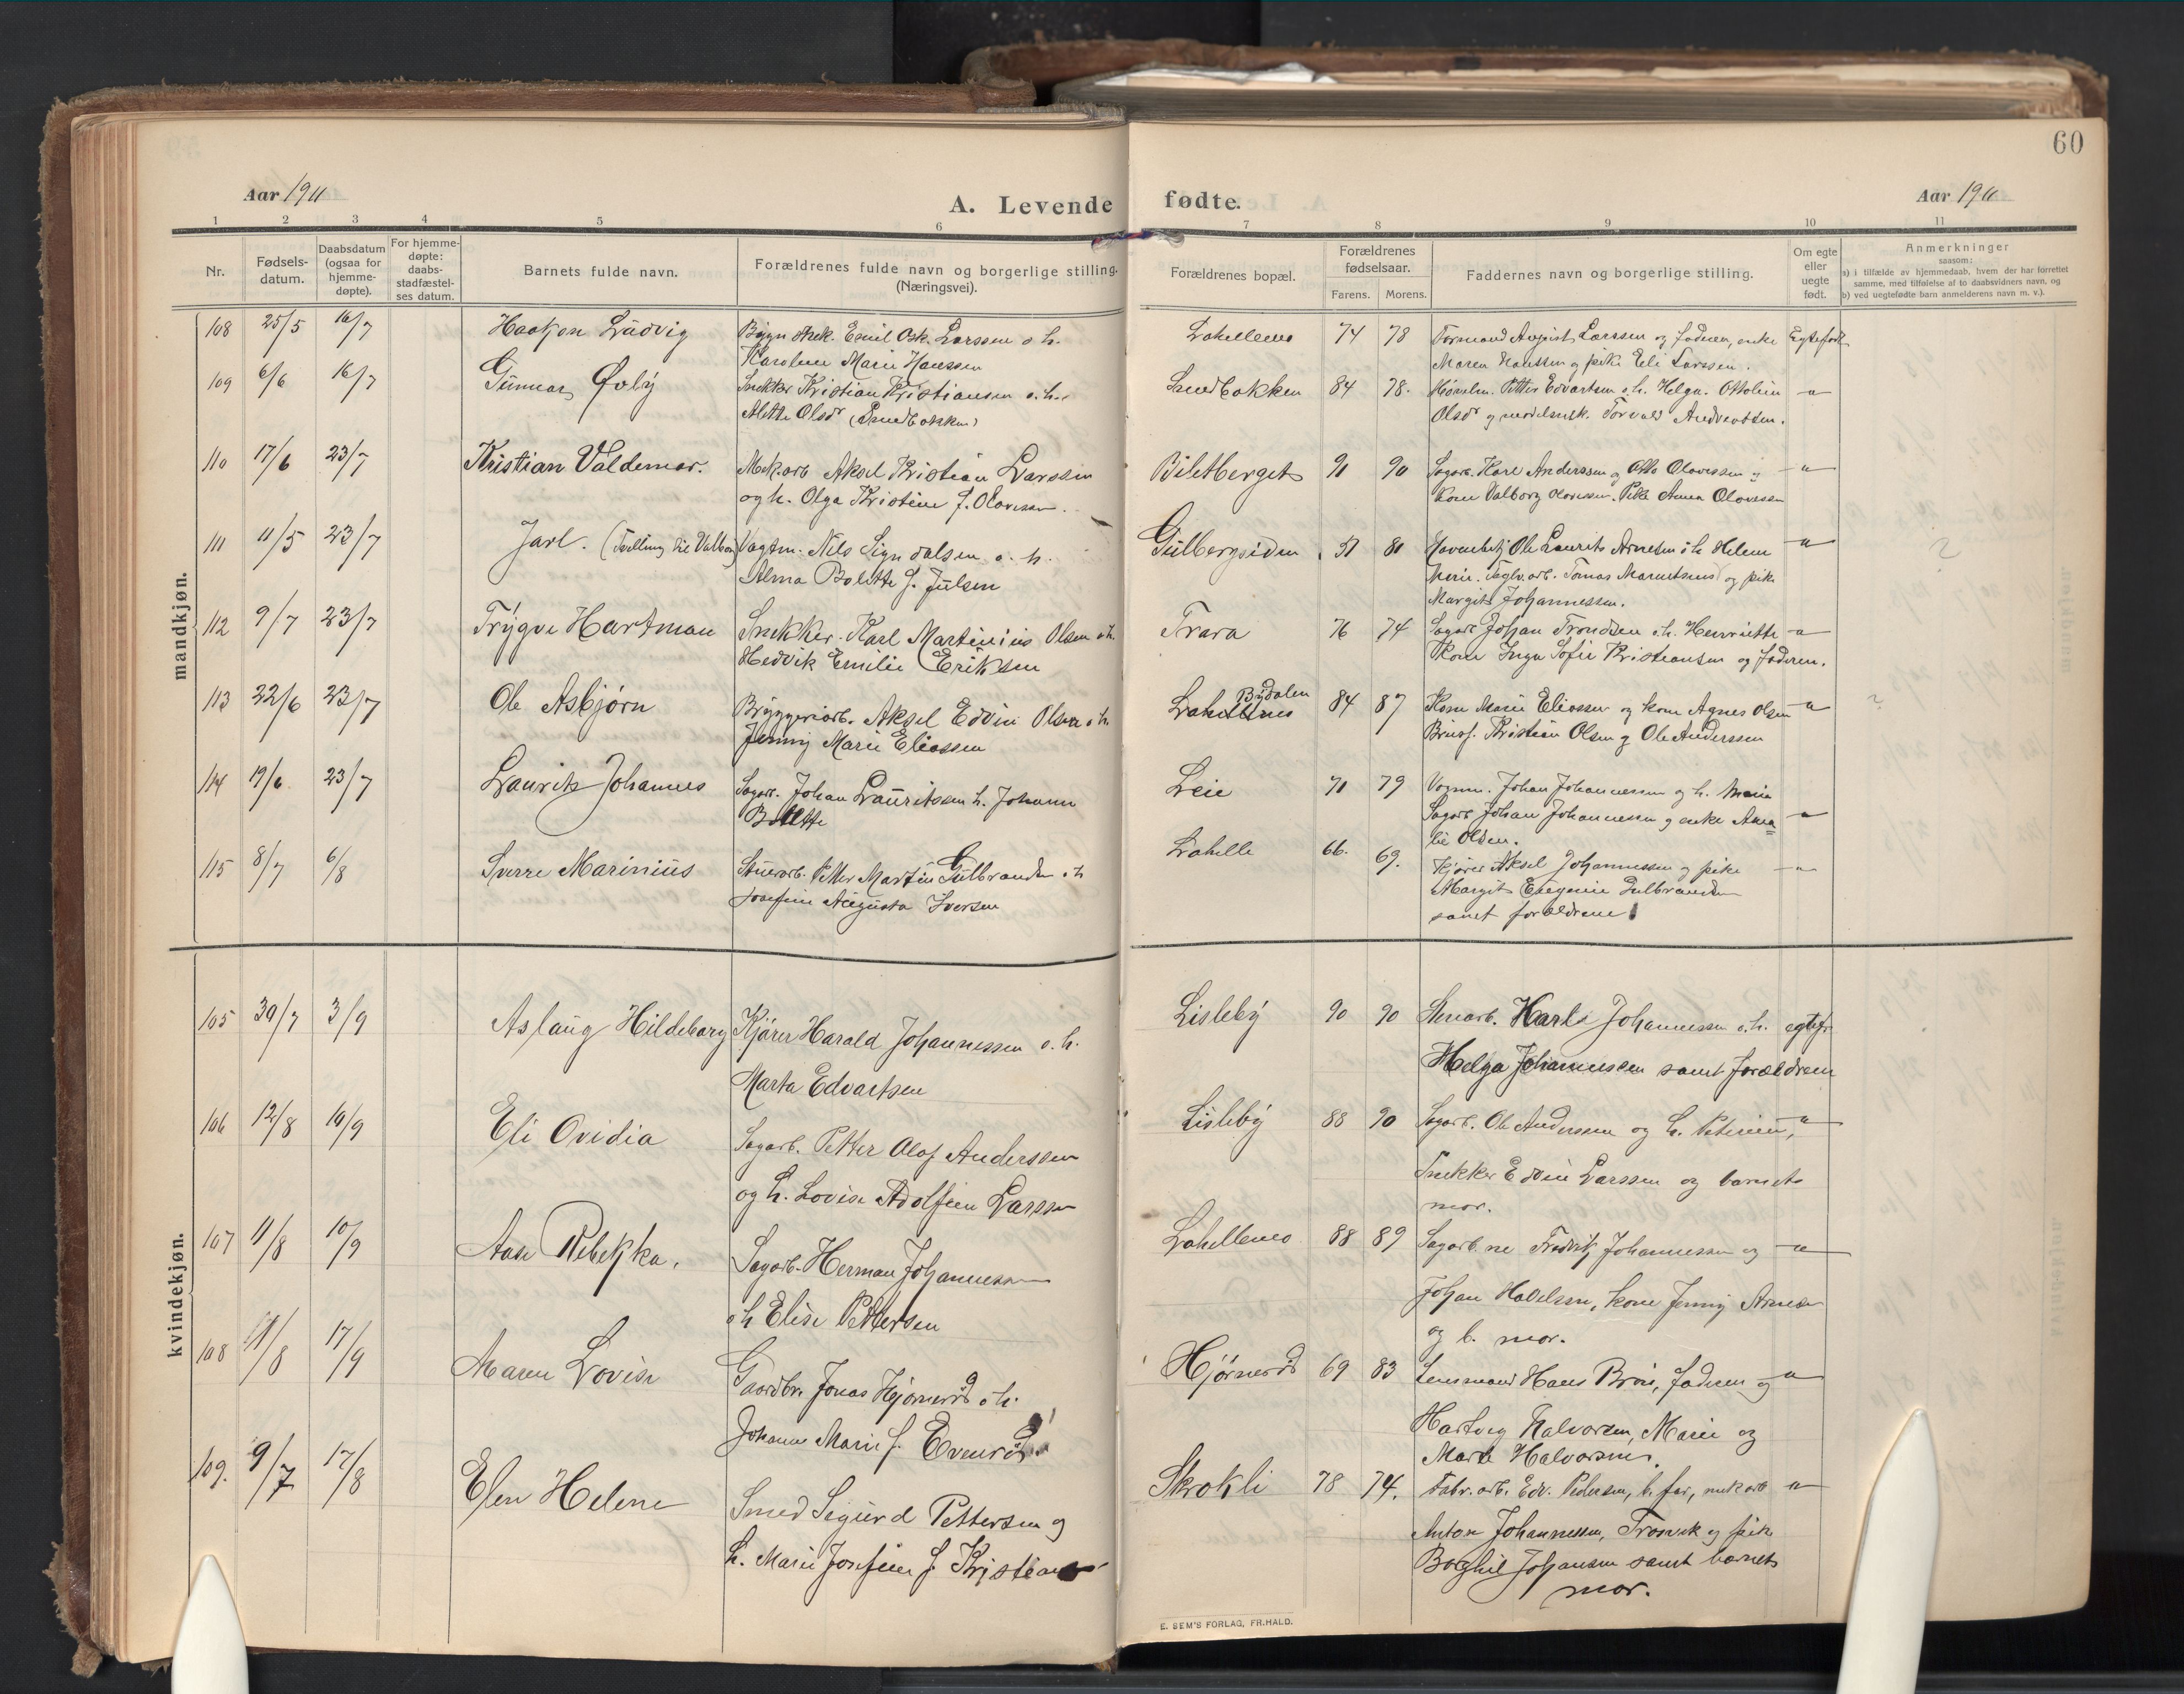 60
Aar 1911
A. Levende fødte.
Aar 1911
1 2 3 4 5 6 7 8 9 10 11
Nr.
Fødsels-
datum.
Daabsdatum
(ogsaa for
hjemme-
døpte).
For hjemme-
døpte:
daabs-
stadfæstel-
ses datum.
Barnets fulde navn.
Forældrenes fulde navn og borgerlige stilling.
(Næringsvei).
Forældrenes bopæl.
Forældrenes
fødselsaar.
Farens. Morens.
Faddernes navn og borgerlige stilling.
Om egte
eller
uegte
født.
Anmerkninger
saasom:
a) i tilfælde av hjemmedaab, hvem der har forrettet
samme, med tilføielse af to daabsvidners navn, og
b) ved uegtefødte barn anmelderens navn m. v.).
mandkjøn.
108 25/5 16/7 Haakon Ludvig Emil Osk. Larssen o. h. 74 78 Formand August Larssen og faderen, enke Egtefødt
Karoline Marie Hanssen Maren Hanssen og pike Eli Larssen.
109 6/6 16/7 Gunnar Øvby Snekker Kristian Kristiansen o. h. Smedbakken 84 78. Petter Edvartsen o. h. Helga Ottoline -"-
Alette Olsdr (Smedbakken) Olsdr og modelsnek. Torvald Andreassen.
110 17/6 23/7 Kristian Valdemar. Mek. arb Aksel Kristian Larssen Biletberget 90 Sagarb. Karl Anderssen og Otto Olavessen og -"-
og h. Olga Kristine f. Olavessen. kone Valborg Olavessen. Pike Anna Olavessen
111 11/5 23/7 Jarl. (Tvilling til Valborg) Vagtm. Nils Sigvaldsen o. h. Gulbergsiden 81 Ole Laurits Arnesen o h Helene -"- ?
Alma Bolette f. Julsen Marie. Teglv. arb. Tomas og pike
Margit Johannessen.
112 9/7 23/7 Trygve Hartman Snekker Karl Martinius Olsen o h. Trara 76 74 Sagarb Johan Trondsen o. h. Henriette -"-
Hedvik Emilie Eriksen kone Inga Sofie Kristiansen og faderen.
113 22/6 23/7 Ole Asbjørn Bryggeriarb. Aksel Edvin Olsen o h Bydalen Lahellemo 84 87 Kone Marie Eliassen og kone Agnes Olsen -"- ?
Jenny Marie Eliassen Kristian Olsen og Ole Anderssen
114 19/6 23/7 Laurits Johannes Sagarb. Johan Lauritssen h. Johanne Leie 71 79 Vognm. Johan Johannessen og h. Marie
Bolette Sagarb Johan Johannessen og enke Ama= -"-
lie Olsen.
115 8/7 6/8 Sverre Marinius Stuerarb. Petter Martin Gulbrandsen o h Lahelle 66. 69. Kjører Aksel Johannessen og pike -"-
Josefine Augusta Iversen Margit Eugenie Gulbrandsen
samt forældrene
kvindekjøn.
105 30/7 3/9 Aslaug Hildeborg Kjører Harald Johannessen o. h. Lisleby 90 90 Stenarb. Karls Johannessen o. h. egtef.
Marta Edvartsen Helga Johannessen samt forældrene
106 12/8 10/9 Eli Ovidia Sagarb. Petter Olaf Anderssen Lisleby 88 90 Sagarb. Ole Anderssen og h. Petrine, -"-
og h. Lovise Adolfine Larssen Snekker Edvin Larssen og barnets
mor.
107 11/8 10/9 Aase Rebekka. Sagarb. Herman Johannessen Lahellemo 88 89 Sagarb. ne Fredrik Johannessen og -"-
o h Elise Pettersen Johan Halvorsen, kone Jenny Arnesen
og b. mor.
108 11/8 17/9 Maren Lovise Gaardbr. Jonas Hjørnerød o h. Hjørnerød 69 83 Lensmand Hans Broe, faderen og -"-
Johanne Marie f. Evenrød Hartvig Halvorsen, Marie og
Marte Halvorsen.
109. 9/7 17/8 Elen Helene Smed Sigurd Pettersen og Skrokli 78 74. Fabr. arb. Edv. Pedersen, b. far, mek arb -"-
h. Marie Josefine f. Kristians Anton Johannessen, Trosvik og pike
Borghil Johansen samt barnets
mor.
E. SEM'S FORLAG, FR.HALD.